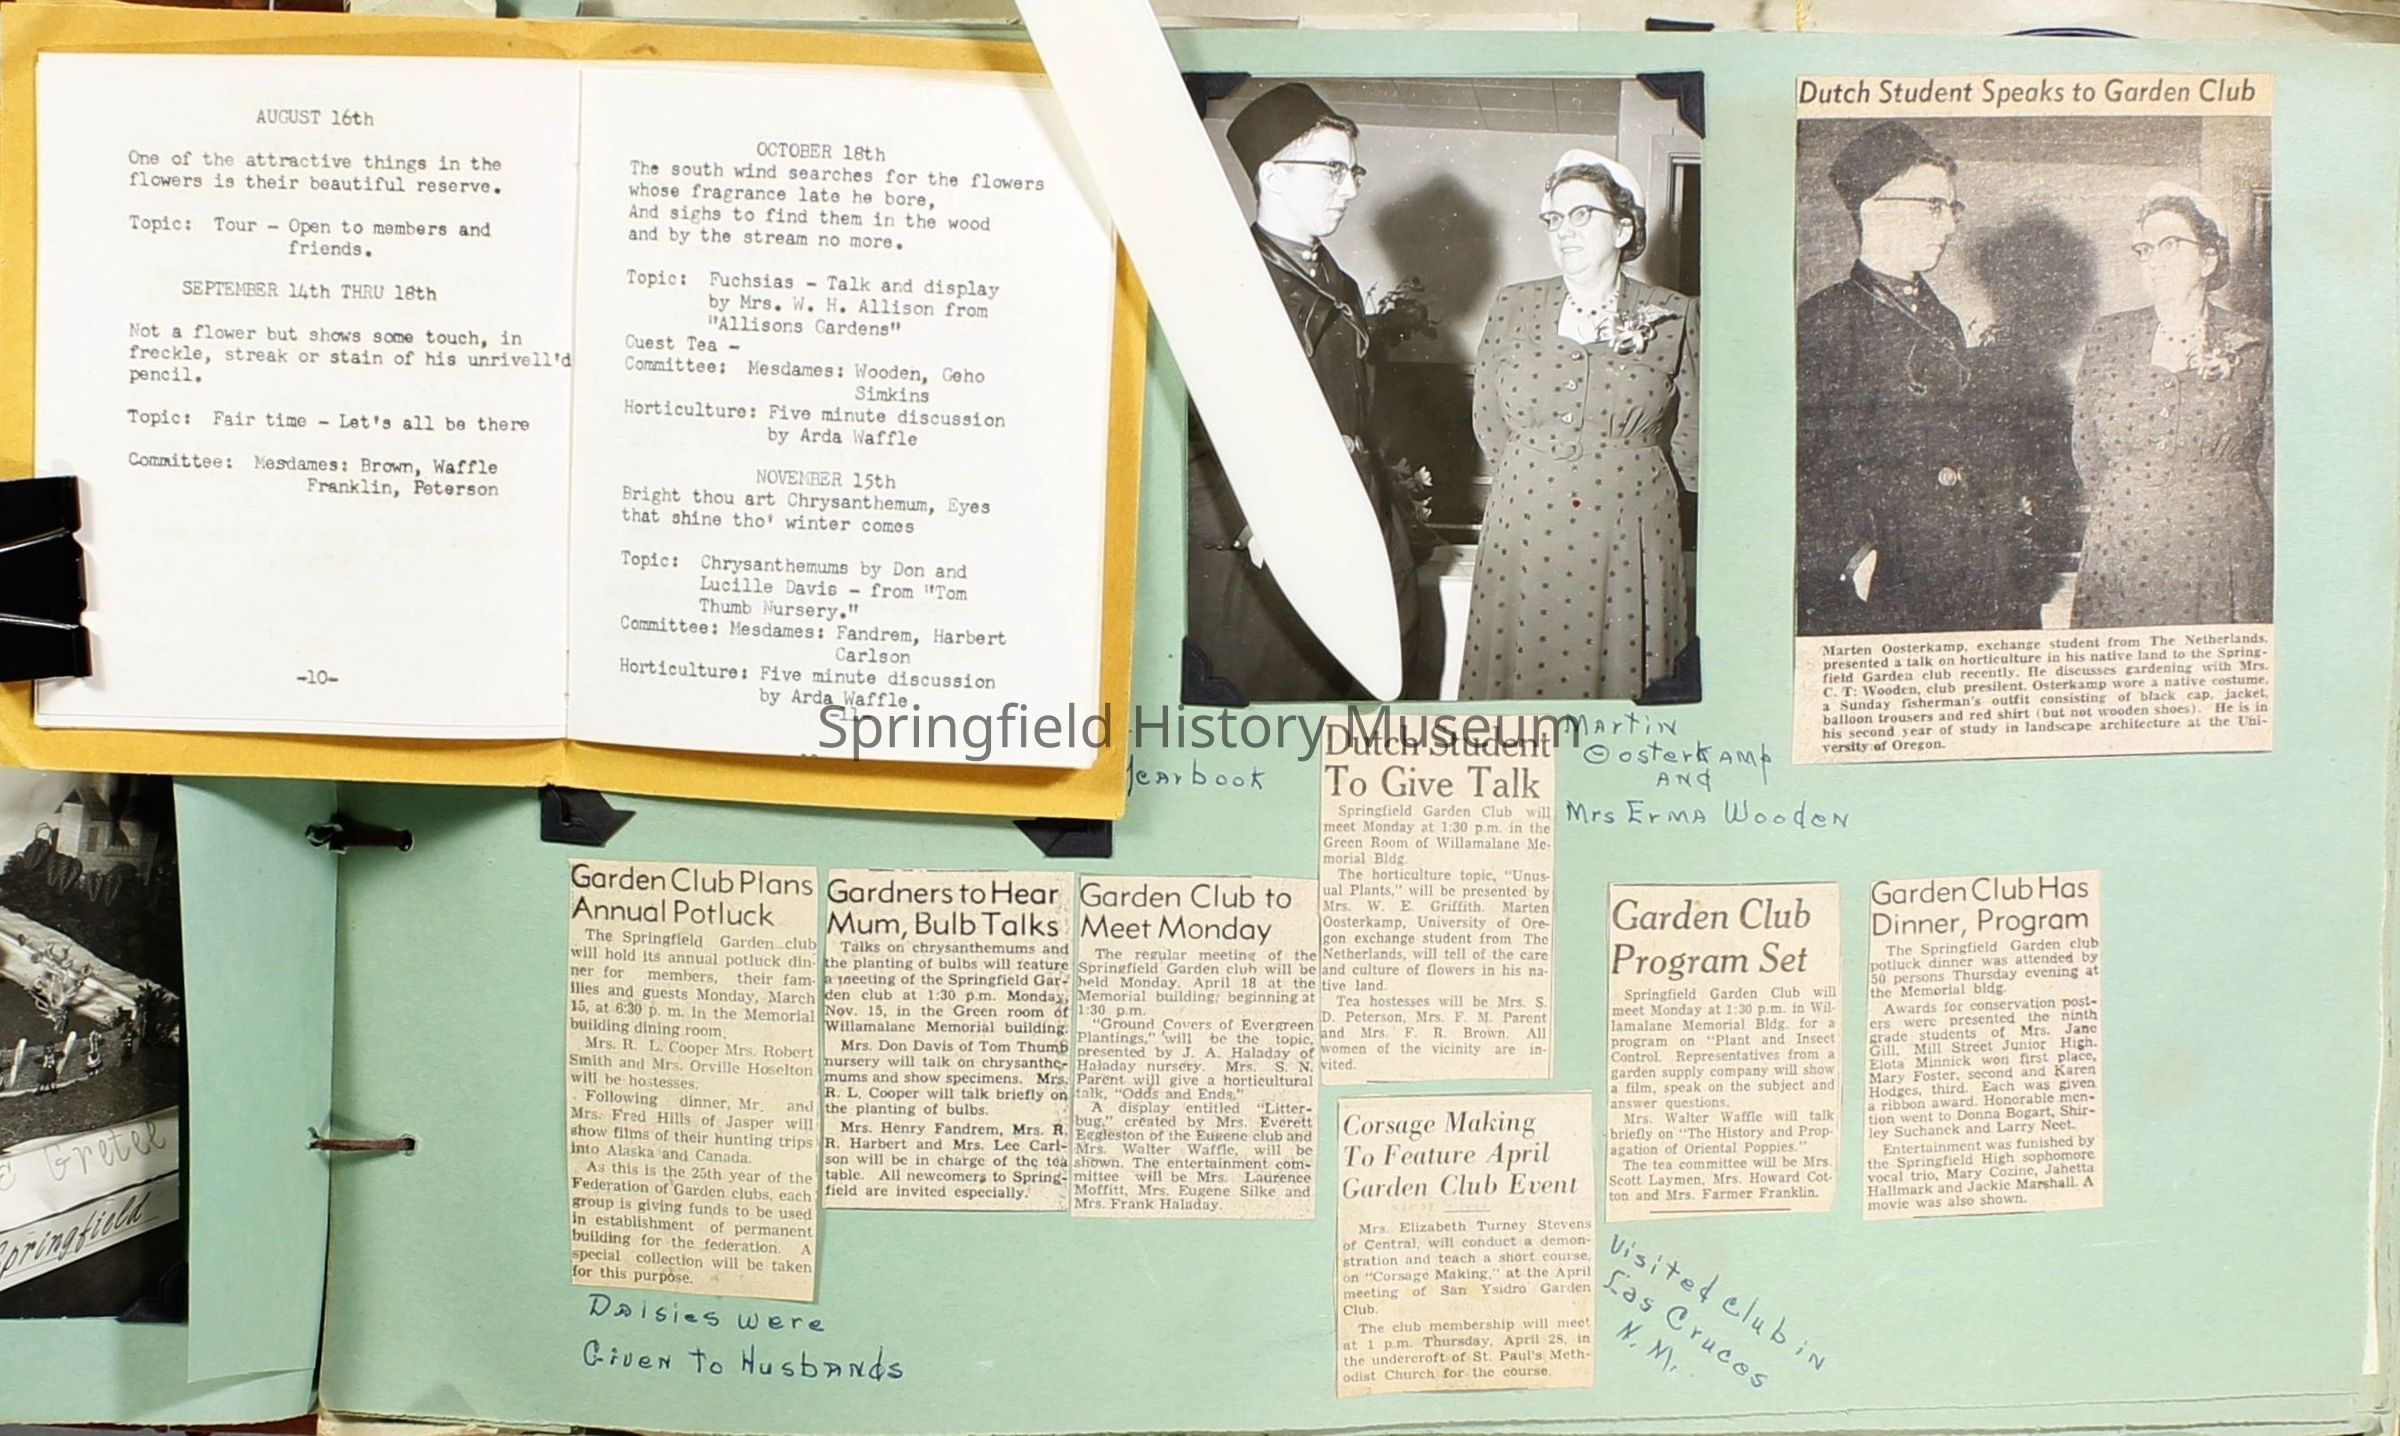 AUGUST 16th
One of the attractive things in the
flowers is their beautiful reserve.
Topic: Tour - Open to members and
friends.
SEPTEMBER 14th THRU 18th
Not a flower but shows some touch, in
freckle, streak or stain of his unrivell'd
pencil.
Topic: Fair time - Let's all be there
Committee: Mesdames: Brown, Waffle
Franklin, Peterson
-10-
OCTOBER 18th
The south wind searches for the flowers
whose fragrance late he bore,
And sighs to find them in the wood
and by the stream no more.
Topic: Fuchsias - Talk and display
by Mrs. W. H. Allison from
"Allisons Gardens"
Guest Tea -
Committee: Mesdames: Wooden, Geho
Simkins
Horticulture: Five minute discussion
by Arda Waffle
NOVEMBER 15th
Bright thou art Chrysanthemum, Eyes
that shine tho' winter comes
Topic: Chrysanthemums by Don and
Lucille Davis - from "Tom
Thumb Nursery."
Committee: Mesdames: Fandrem, Harbert
Carlson
Horticulture: Five minute discussion
by Arda Waffle
Springfield History Museum
Yearbook
Martin
Oosterkamp
and
Mrs Erma Wooden
Dutch Student Speaks to Garden Club
Marten Oosterkamp, exchange student from The Netherlands,
presented a talk on horticulture in his native land to the Spring-
field Garden club recently. He discusses gardening with Mrs.
C. T. Wooden, club presilent. Osterkamp wore a native costume,
a Sunday fisherman's outfit consisting of black cap, jacket,
balloon trousers and red shirt (but not wooden shoes). He is in
his second year of study in landscape architecture at the Uni-
versity of Oregon.
Garden Club Plans
Annual Potluck
The Springfield Garden club
will hold its annual potluck din-
ner for members, their fam-
ilies and guests Monday, March
15, at 6:30 p. m. in the Memorial
building dining room.
Mrs. R. L. Cooper Mrs. Robert
Smith and Mrs. Orville Hoselton
will be hostesses.
Following dinner, Mr. and
Mrs. Fred Hills of Jasper will
show films of their hunting trips
into Alaska and Canada.
As this is the 25th year of the
Federation of Garden clubs, each
group is giving funds to be used
in establishment of permanent
building for the federation. A
special collection will be taken
for this purpose.
Daisies were
Given to Husbands
Gardners to Hear
Mum, Bulb Talks
Talks on chrysanthemums and
the planting of bulbs will feature
a meeting of the Springfield Gar-
den club at 1:30 p.m. Monday,
Nov. 15, in the Green room of
Willamalane Memorial building.
Mrs. Don Davis of Tom Thumb
nursery will talk on chrysanthe-
mums and show specimens. Mrs.
R. L. Cooper will talk briefly on
the planting of bulbs.
Mrs. Henry Fandrem, Mrs. R.
R. Harbert and Mrs. Lee Carl-
son will be in charge of the tea
table. All newcomers to Spring-
field are invited especially.
Garden Club to
Meet Monday
The regular meeting of the
Springfield Garden club will be
held Monday, April 18 at the
Memorial building, beginning at
1:30 p.m.
"Ground Covers of Evergreen
Plantings," will be the topic,
presented by J. A. Haladay of
Haladay nursery. Mrs. S. N.
Parent will give a horticultural
talk, "Odds and Ends."
A display entitled "Litter-
bug," created by Mrs. Everett
Eggleston of the Eugene club and
Mrs. Walter Waffle, will be
shown. The entertainment com-
mittee will be Mrs. Laurence
Moffitt, Mrs. Eugene Silke and
Mrs. Frank Haladay.
Dutch Student
To Give Talk
Springfield Garden Club will
meet Monday at 1:30 p.m. in the
Green Room of Willamalane Me-
morial Bldg.
The horticulture topic, "Unus-
ual Plants," will be presented by
Mrs. W. E. Griffith. Marten
Oosterkamp, University of Ore-
gon exchange student from The
Netherlands, will tell of the care
and culture of flowers in his na-
tive land.
Tea hostesses will be Mrs. S.
D. Peterson, Mrs. F. M. Parent
and Mrs. F. R. Brown. All
women of the vicinity are in-
vited.
Corsage Making
To Feature April
Garden Club Event
Mrs. Elizabeth Turney Stevens
of Central, will conduct a demon-
stration and teach a short course,
on "Corsage Making," at the April
meeting of San Ysidro Garden
Club.
The club membership will meet
at 1 p.m. Thursday, April 28, in
the undercroft of St. Paul's Meth-
odist Church for the course.
Garden Club
Program Set
Springfield Garden Club will
meet Monday at 1:30 p.m. in Wil-
lamalane Memorial Bldg. for a
program on "Plant and Insect
Control. Representatives from a
garden supply company will show
a film, speak on the subject and
answer questions.
Mrs. Walter Waffle will talk
briefly on "The History and Prop-
agation of Oriental Poppies."
The tea committee will be Mrs.
Scott Laymen, Mrs. Howard Cot-
ton and Mrs. Farmer Franklin.
Visited club in
Las Cruces
N. M.
Garden Club Has
Dinner, Program
The Springfield Garden club
potluck dinner was attended by
50 persons Thursday evening at
the Memorial bldg.
Awards for conservation post-
ers were presented the ninth
grade students of Mrs. Jane
Gill, Mill Street Junior High.
Elota Minnick won first place,
Mary Foster, second and Karen
Hodges, third. Each was given
a ribbon award. Honorable men-
tion went to Donna Bogart, Shir-
ley Suchanek and Larry Neet.
Entertainment was funished by
the Springfield High sophomore
vocal trio, Mary Cozine, Jahetta
Hallmark and Jackie Marshall. A
movie was also shown.
Gretel
Springfield